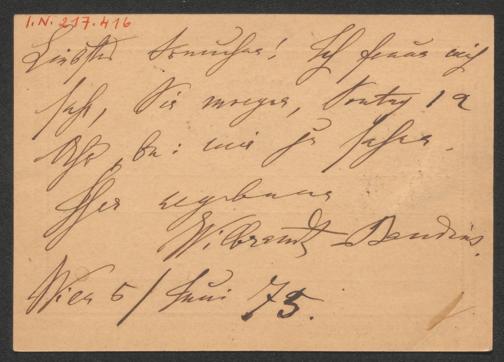 I.N. 217.416
Liebster Freund! Ich freue mich
sehr, Sie morgen, Sontag 12
Uhr, bei mir zu sehen.
Ihr ergebener
Wilbrandt-Baudius.
Wien 5/Juni 75.